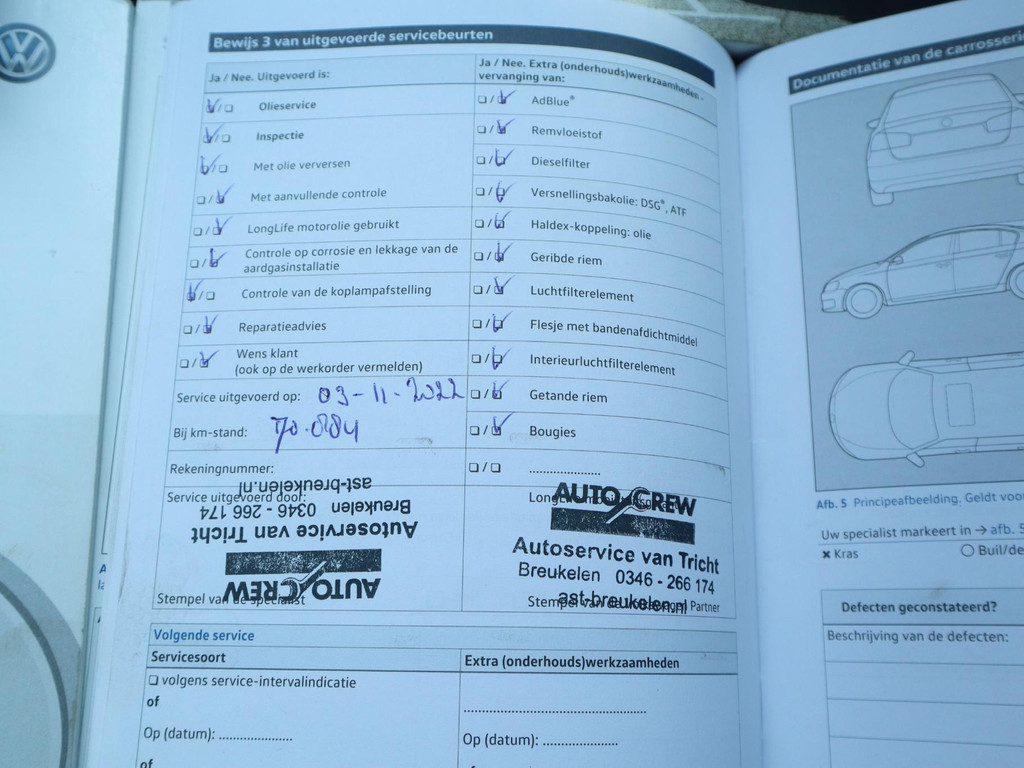 Bewijs 3 van uitgevoerde servicebeurten
Ja / Nee. Uitgevoerd is:
Olieservice
Inspectie
Met olie verversen
Met aanvullende controle
LongLife motorolie gebruikt
Controle op corrosie en lekkage van de
aardgasinstallatie
Controle van de koplampafstelling
Reparatieadvies
Wens klant
(ook op de werkorder vermelden)
Service uitgevoerd op: 03-11-2022
Bij km-stand: 70.884
Rekeningnummer:
Service uitgevoerd door:
AUTO CREW
Autoservice van Tricht
Breukelen 0346 - 266 174
ast-breukelen.nl
Stempel van de specialist
Ja / Nee. Extra (onderhouds)werkzaamheden -
vervanging van:
AdBlue®
Remvloeistof
Dieselfilter
Versnellingsbakolie: DSG®, ATF
Haldex-koppeling: olie
Geribde riem
Luchtfilterelement
Flesje met bandenafdichtmiddel
Interieurluchtfilterelement
Getande riem
Bougies
....................
AUTO CREW
Autoservice van Tricht
Breukelen 0346 - 266 174
ast-breukelen.nl
Stempel van de Partner
Volgende service
Servicesoort
volgens service-intervalindicatie
of
Op (datum): ....................
of
Extra (onderhouds)werkzaamheden
Op (datum): ....................
Documentatie van de carrosserie
Afb. 5 Principeafbeelding. Geldt voor
Uw specialist markeert in → afb. 5
× Kras
Buil/de
Defecten geconstateerd?
Beschrijving van de defecten:
VW